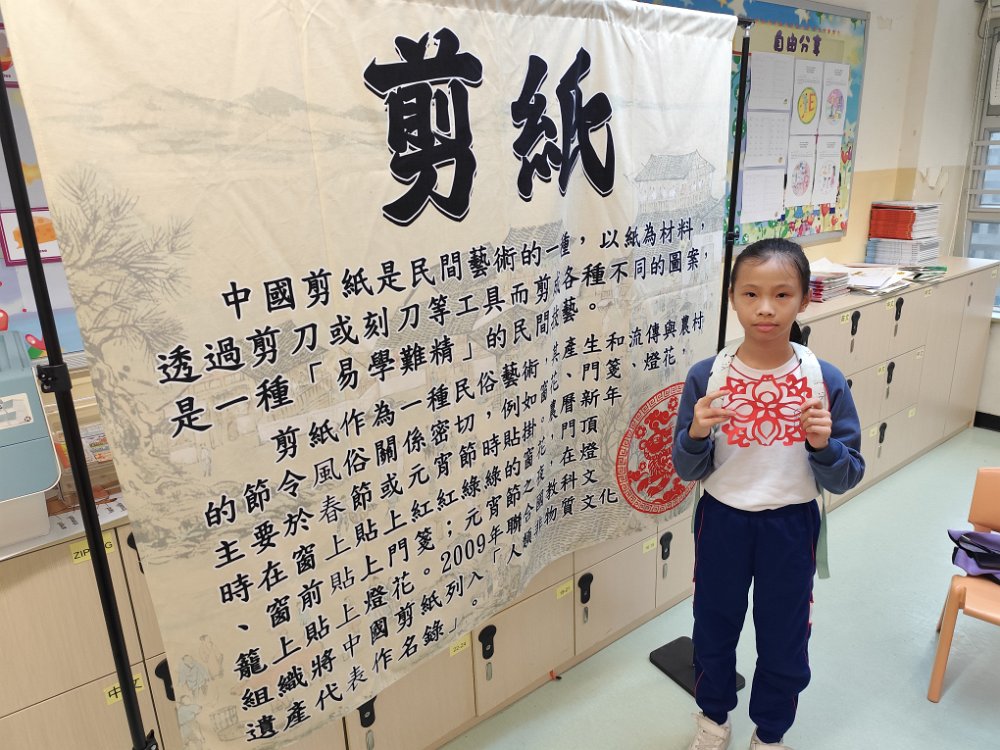 自由分享
剪紙
中國剪紙是民間藝術的一種，以紙為材料，
透過剪刀或刻刀等工具而剪紙各種不同的圖案，
是一種「易學難精」的民間技藝。
剪紙作為一種民俗藝術，其產生和流傳與農村
的節令風俗關係密切，例如窗花、門箋、燈花，
主要於春節或元宵節時貼掛。農曆新年
時在窗上貼上紅紅綠綠的窗花，門頂
、窗前貼上門箋；元宵節之夜，在燈
籠上貼上燈花。2009年聯合國教科文
組織將中國剪紙列入「人類非物質文化
遺產代表作名錄」。
中文